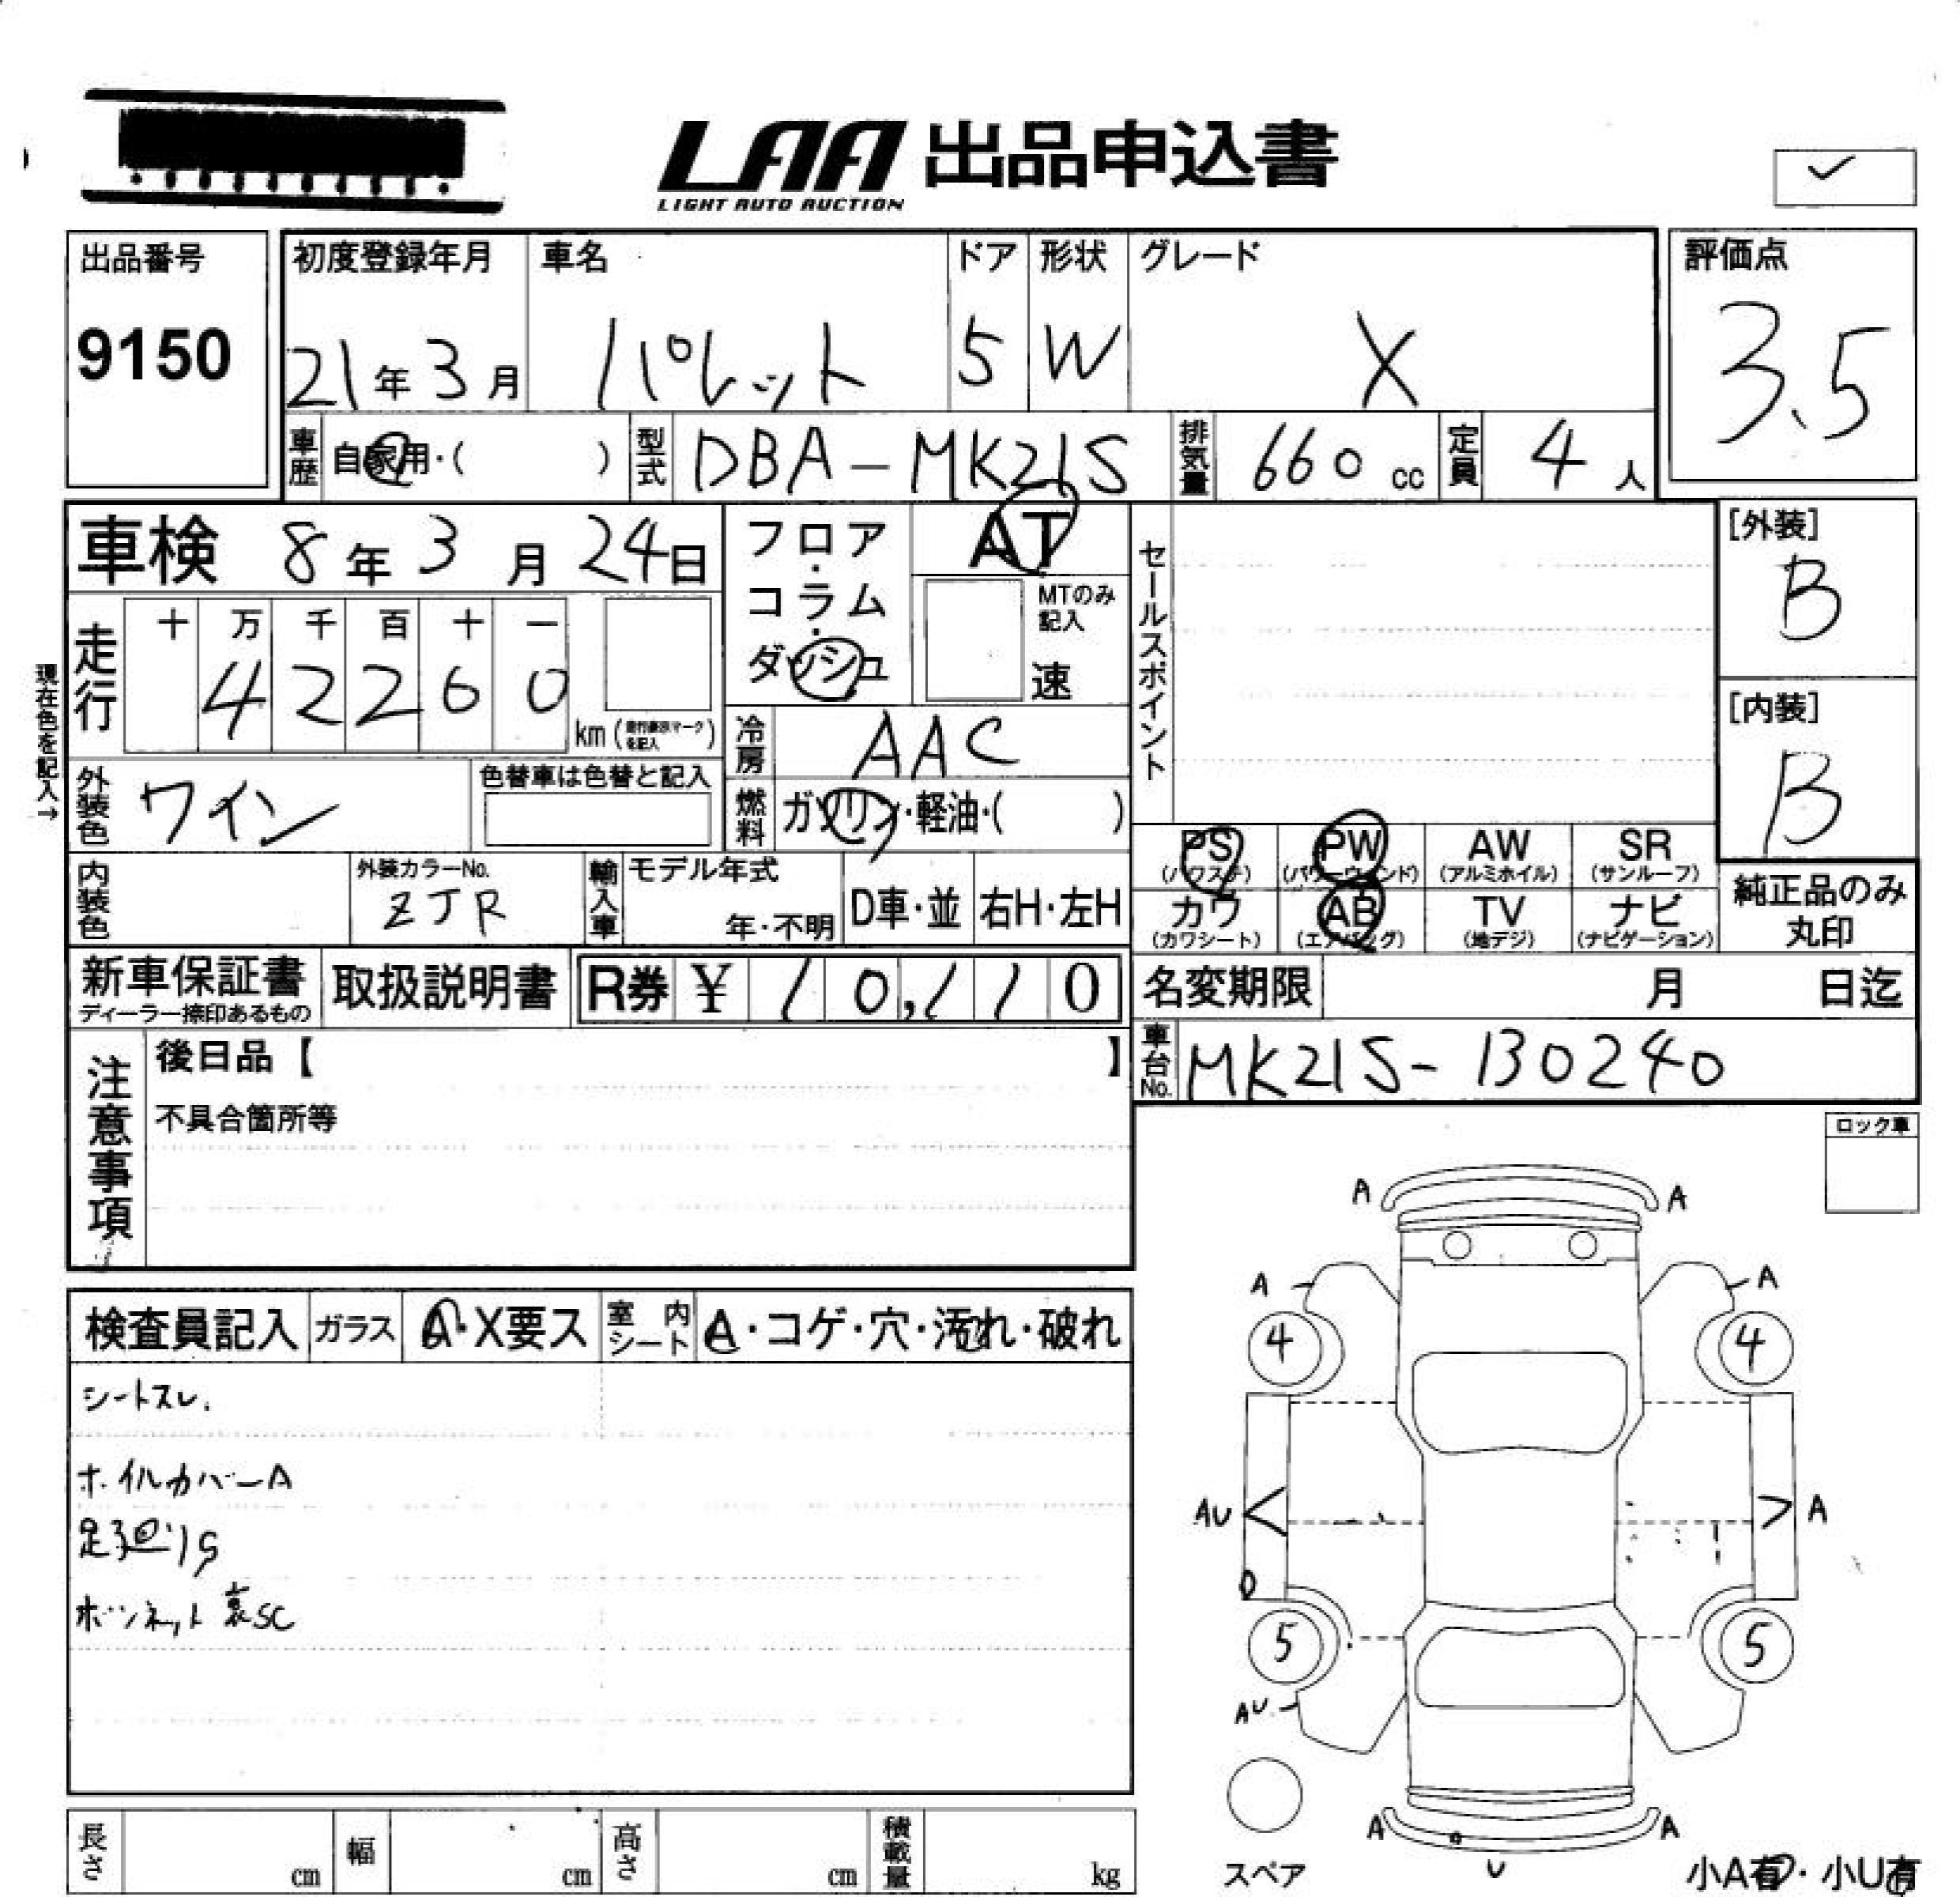 LAA 出品申込書
LIGHT AUTO AUCTION
出品番号
9150
初度登録年月
21年3月
車名
パレット
ドア
5
形状
W
グレード
X
評価点
3.5
車歴
自家用・( )
型式
DBA-MK21S
排気量
660cc
定員
4人
車検 8年3月24日
走行
十 万 千 百 十 一
4 2 2 6 0
km (走行表示マークを記入)
現在色を記入→
フロア・コラム・ダッシュ
AT
MTのみ記入
速
冷房
AAC
燃料
ガソリン・軽油・( )
外装色
ワイン
色替車は色替と記入
内装色
外装カラーNo.
ZJR
輸入車
モデル年式
年・不明
D車・並
右H・左H
セールスポイント
[外装]
B
[内装]
B
PS
(パワステ)
PW
(パワーウィンド)
AW
(アルミホイル)
SR
(サンルーフ)
カワ
(カワシート)
AB
(エアバッグ)
TV
(地デジ)
ナビ
(ナビゲーション)
純正品のみ
丸印
新車保証書
ディーラー捺印あるもの
取扱説明書
R券 ¥ 10,110
名変期限 月 日迄
車台No.
MK21S-130240
注意事項
後日品【 】
不具合箇所等
ロック車
検査員記入
ガラス
A・X要ス
室内シート
A・コゲ・穴・汚れ・破れ
シートスレ.
ホイルカバーA
足廻りS
ボンネット裏SC
A A
A A
4 4
AU A
5 5
AU
A A
U
スペア
小A有・小U有
長さ cm
幅 cm
高さ cm
積載量 kg